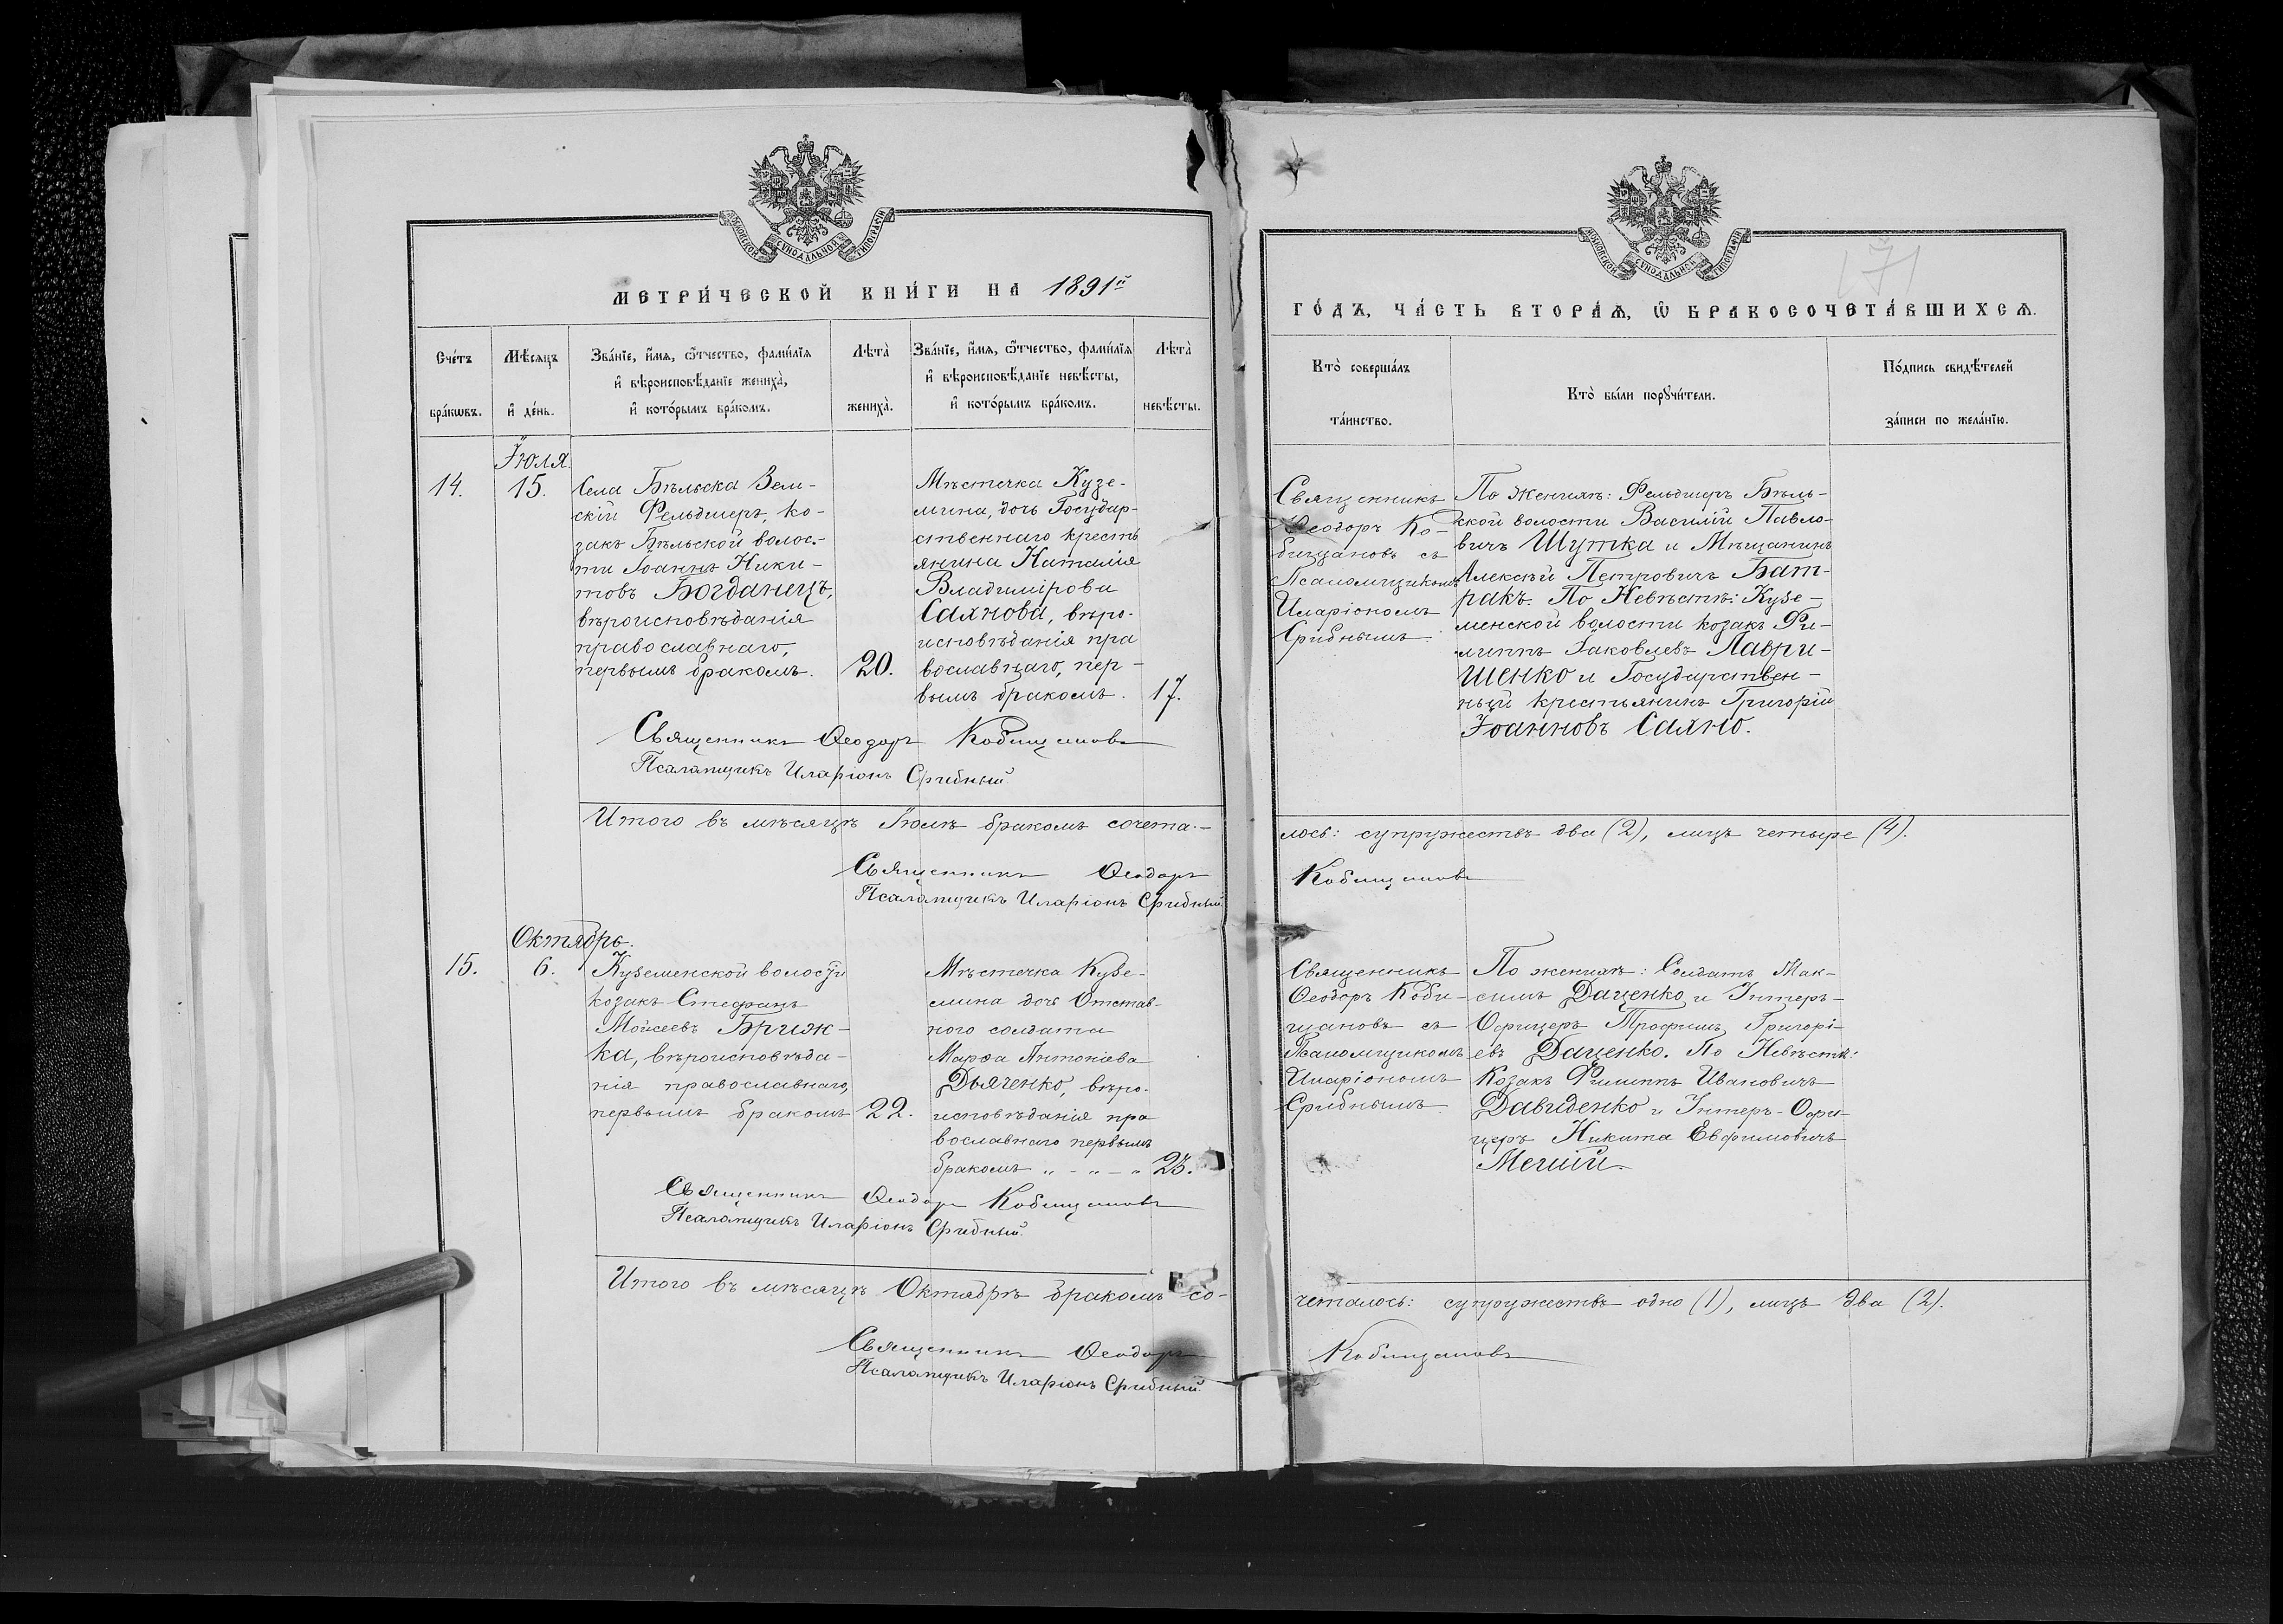 МОСКОВСКОЙ СѴНОДАЛЬНОЙ ТИПОГРАФІИ
МЕТРИ́ЧЕСКОЙ КНИ́ГИ НА 1891й
Сче́тъ бра́кѡвъ.
Мѣ́сяцъ и҆ де́нь.
Зва́нїе, и҆́мя, ѻ҆́тчество, фами́лїя
и҆ вѣроисповѣ́данїе жениха̀,
и҆ кото́рымъ бра́комъ.
Лѣта̀ жениха̀.
Зва́нїе, и҆́мя, ѻ҆́тчество, фами́лїя
и҆ вѣроисповѣ́данїе невѣ́сты,
и҆ кото́рымъ бра́комъ.
Лѣта̀ невѣ́сты.
Іюля
14.
15.
Села Бѣльска Зем-
скій Фельдшеръ, ко-
закъ Бѣльской волос-
ти Іоаннъ Ники-
товъ Богданецъ,
вѣроисповѣданія
православнаго,
первымъ бракомъ.
20.
Мѣстечка Кузе-
мина, дочь Государ-
ственнаго кресть
янина Наталія
Владимірова
Саянова, вѣро-
исповѣданія пра
вославнаго, пер-
вымъ бракомъ.
17.
Священникъ Ѳеодоръ Кобищановъ
Псаломщикъ Иларіонъ Срибный
Итого въ мѣсяцѣ Іюлѣ бракомъ сочета-
Священникъ Ѳеодоръ
Псаломщикъ Иларіонъ Срибный
Октябрь.
15.
6.
Куземенской волости
козакъ Стефанъ
Мойсеевъ Бриж-
ка, вѣроисповѣда-
нія православнаго,
первымъ бракомъ
22.
Мѣстечка Кузе-
мина дочь Отстав-
ного солдата
Марѳа Антоніева
Дьяченко, вѣро-
исповѣданія пра
вославнаго первымъ
бракомъ „ - „ - „
23.
Священникъ Ѳеодоръ Кобищановъ
Псаломщикъ Иларіонъ Срибный.
Итого въ мѣсяцѣ Октябрѣ бракомъ со-
Священникъ Ѳеодоръ
Псаломщикъ Иларіонъ Срибный.
МОСКОВСКОЙ СѴНОДАЛЬНОЙ ТИПОГРАФІИ
ГО́ДЪ, ЧА́СТЬ ВТОРА́Ѧ, Ѡ҆ БРАКОСОЧЕТА́ВШИХСѦ.
Кто̀ соверша́лъ
та́инство.
Кто̀ бы́ли порꙋчи́тели.
По́дпись свидѣ́телей
за́писи по жела́нїю.
Священникъ
Ѳеодоръ Ко-
бищановъ съ
Псаломщикомъ
Иларіономъ
Срибнымъ.
По женихѣ: Фельдшеръ Бѣль-
ской волости Василій Павло-
вичъ Шутка и Мѣщанинъ
Алексѣй Петровичъ Бат-
ракъ. По Невѣстѣ: Кузе-
менской волости козакъ Фи-
липпъ Іаковлевъ Лаври-
шенко и Государствен-
ный крестьянинъ Григорій
Іоанновъ Саяно.
лось: супружествъ два (2), лицъ четыре (4).
Кобищановъ
Священникъ
Ѳеодоръ Коби-
щановъ съ
Псаломщикомъ
Иларіономъ
Срибнымъ.
По женихѣ: Солдатъ Мак-
симъ Даценко и Унтеръ-
Офицеръ Трофимъ Григорі-
евъ Даценко. По Невѣстѣ:
Козакъ Филиппъ Ивановичъ
Давиденко и Унтеръ-Офи-
церъ Никита Евфимовичъ
четалось: супружествъ одно (1), лицъ два (2).
Кобищановъ